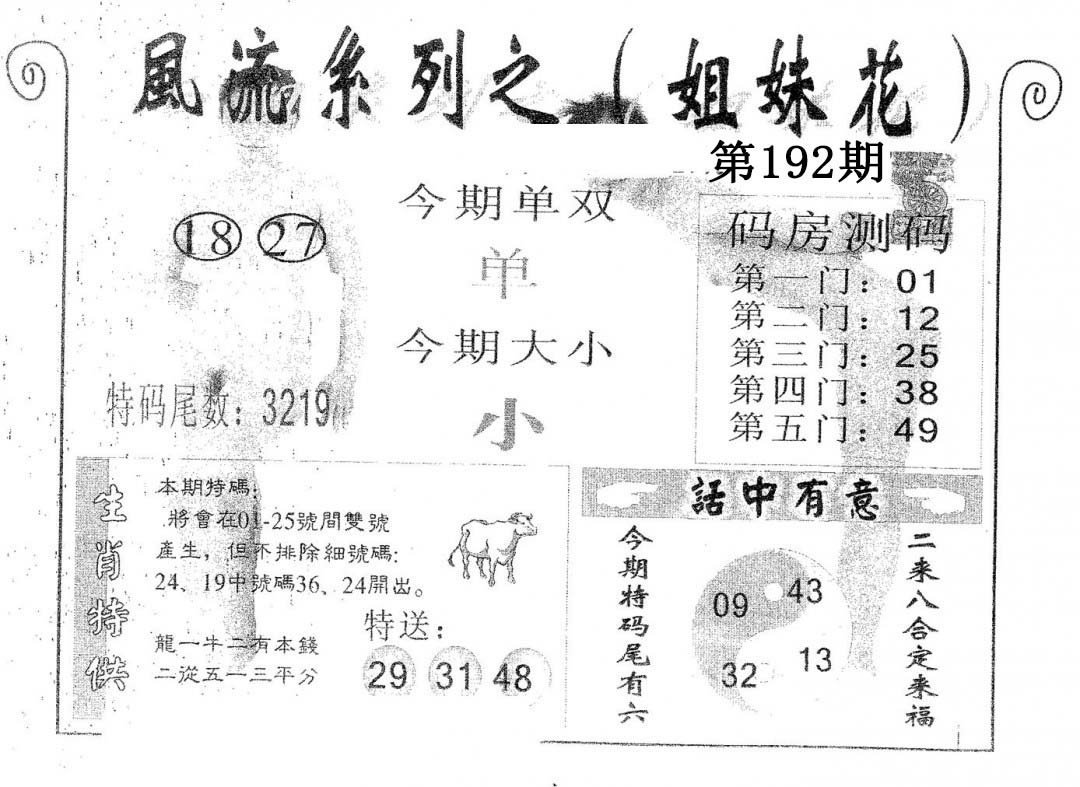 風流系列之（姐妹花）
第192期
18 27
今期单双
单
今期大小
小
特码尾数：3219
码房测码
第一门：01
第二门：12
第三门：25
第四门：38
第五门：49
生肖特供
本期特碼：
將會在01-25號間雙號
產生，但不排除細號碼:
24、19中號碼36、24開出。
龍一牛二有本錢
二從五一三平分
特送：
29 31 48
話中有意
今期特码尾有六
09 43
32 13
二来八合定来福